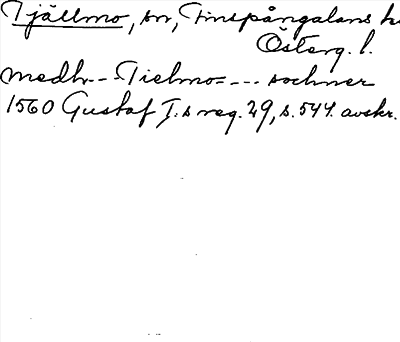 Tjällmo, sn, Finspångaläns h
Österg. l.
medh -- Tielmo -- --- sochner
1560 Gustaf I.s reg. 29, s. 544. avskr.